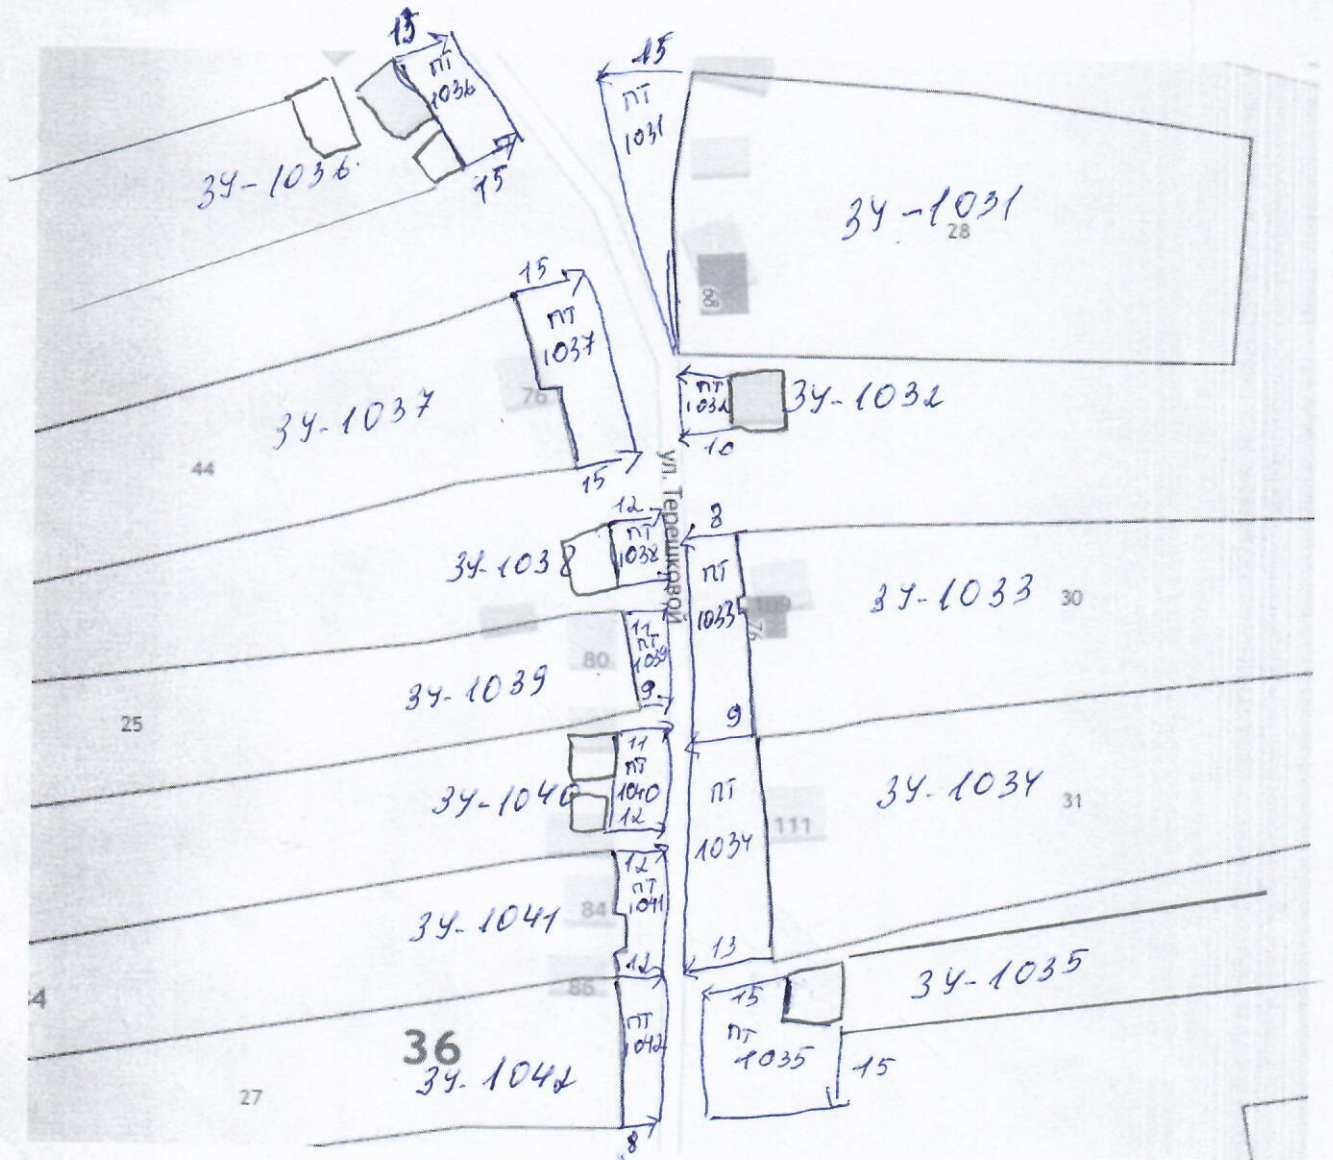 15
ПТ
1036
ЗУ-1036
15
15
ПТ
1031
ЗУ-1031
28
68
15
ПТ
1037
76
ЗУ-1037
44
15
ПТ
1032
ЗУ-1032
10
ул. Терешковой
12
ПТ
1038
ЗУ-1038
8
ПТ
1033
9
109
76
ЗУ-1033
30
11
ПТ
1039
9
80
ЗУ-1039
25
11
ПТ
1040
12
ЗУ-1040
ПТ
1034
13
111
ЗУ-1034
31
12
ПТ
1041
12
84
ЗУ-1041
86
15
ПТ
1035
15
ЗУ-1035
36
ПТ
1042
8
ЗУ-1042
27